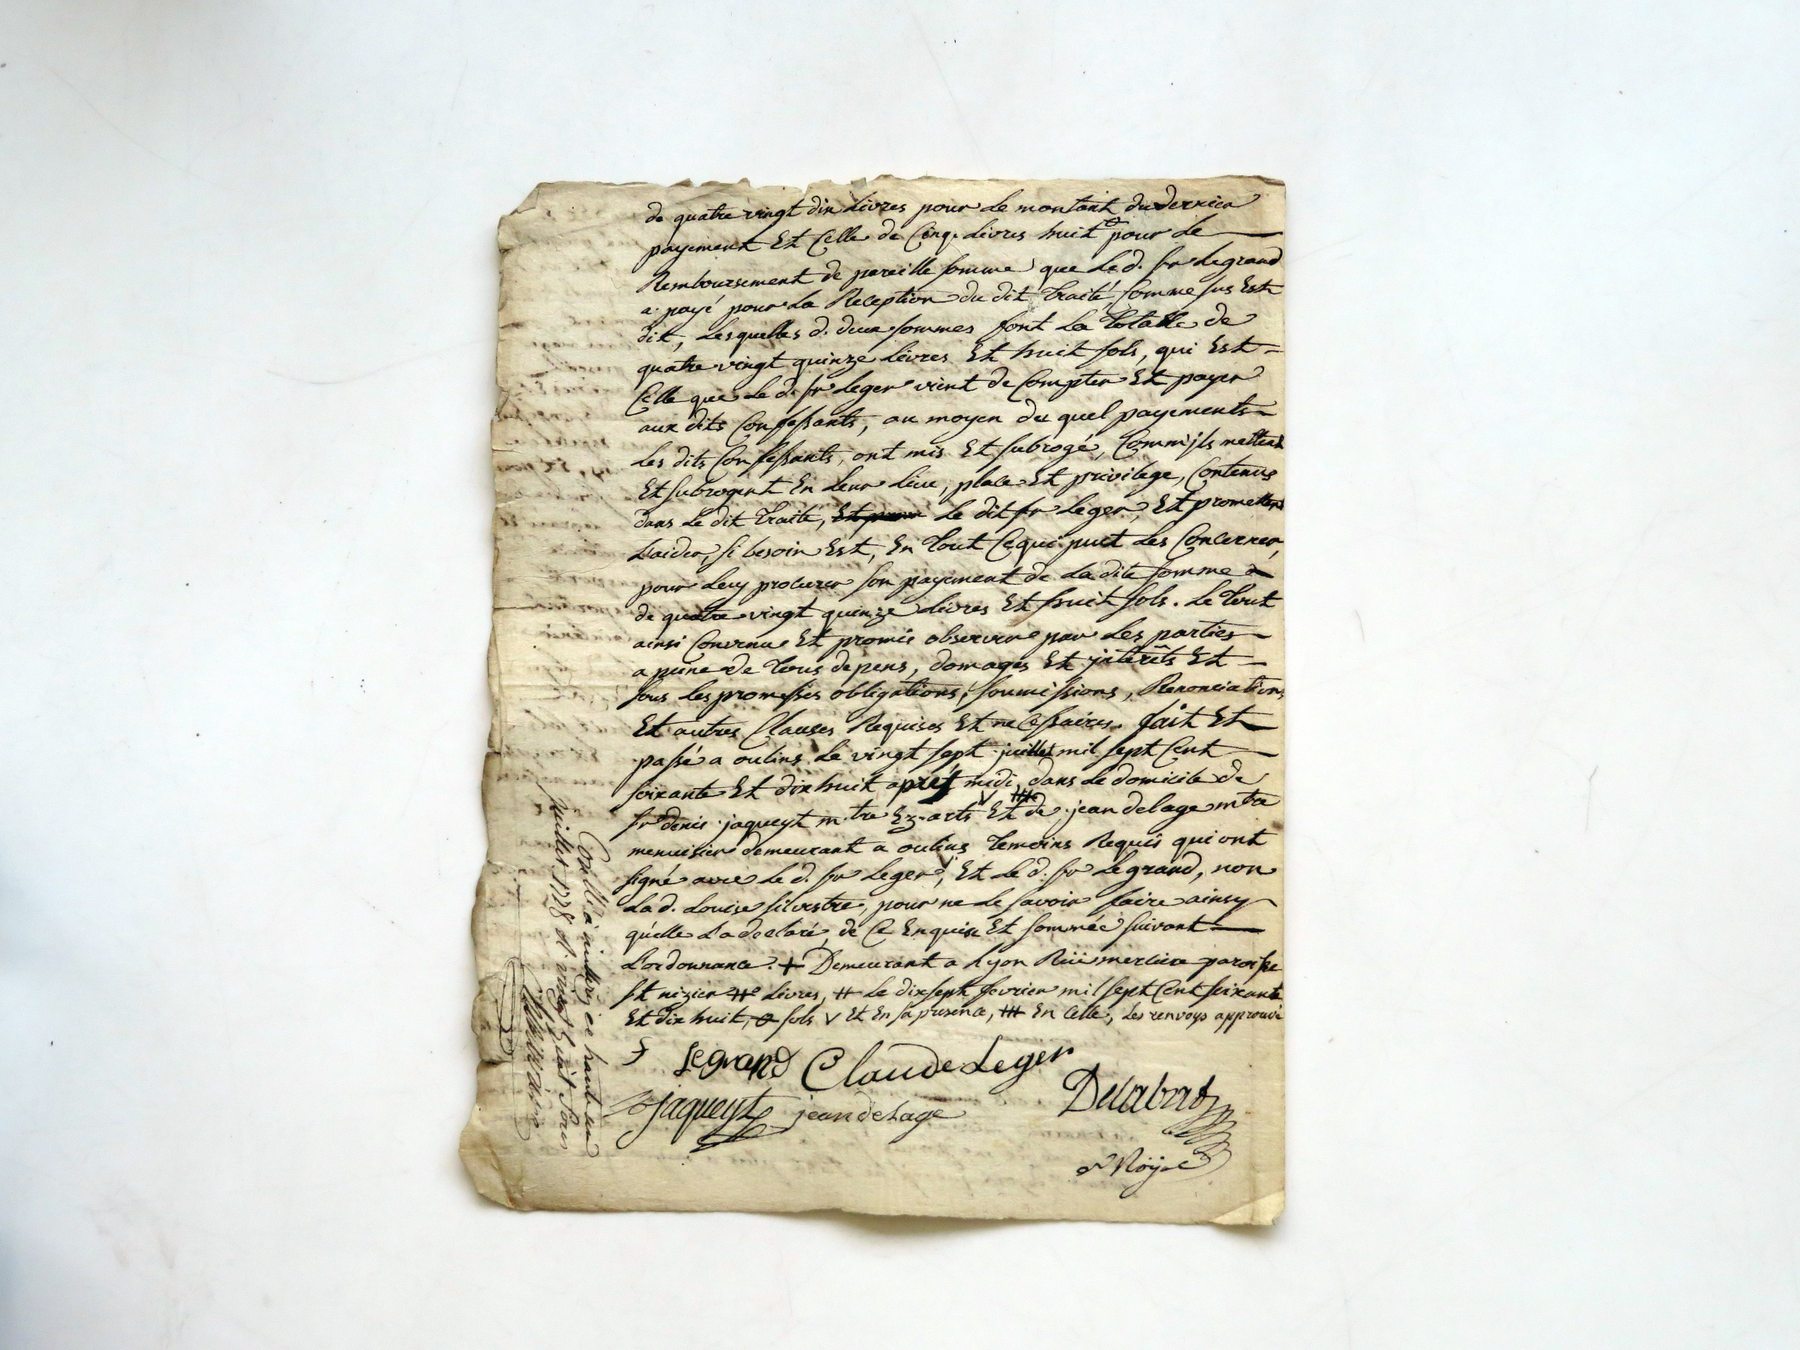 de quatre vingt dix livres pour le montant du dernier
payement Et Celle de Cinq livres huit pour le
Remboursement de pareille somme que le d. sr Legrand
a payé pour la Reception du dit traité Comme sus Est
dit, Lesquelles d. deux sommes font la totalle de
quatre vingt quinze livres Et huit sols, qui Est
Celle que le d. sr Leger vient de Compter Et payer
aux dits Confessants, au moyen du quel payements
Les dits Confessants, ont mis Et subrogé, Comm'jls mettent
Et subrogent En leur lieu, place Et privilege, Contenus
dans le dit traité, le dit sr Leger, Et promettent
L'aider, si besoin Est, En tout Ce qui put les Concerner,
pour luy procurer son payement de la dite somme
de quatre vingt quinze livres Et huit sols. Le tout
ainsi Convenu Et promis observer par les parties
a peine de tous depens, domages Et jnterêts Et
sous les promesses obligations, soumissions, Renonciations
Et autres Clauses Requises Et necessaires. fait Et
passé a oulins le vingt sept juillet mil sept Cent
soixante Et dix huit après midi, dans le domicile de
sr denis jaqueyt m.tre Ez-arts Et de jean delage mtre
menuisier demeurant a oulins temoins Requis qui ont
signé avec le d. sr Leger, Et le d. sr Legrand, non
la d. Louise silvestre, pour ne le savoir faire ainsy
qu'elle l'a declaré, de Ce Enquise Et sommée suivant
L'ordonnance. + Demeurant a Lyon Rüe merciere paroisse
st nizier livres, # le dix sept fevrier mil sept Cent soixante
Et dix huit, sols v Et En sa presence, En Celle, les renvoys approuvé
Legrand Claude Leger
jaqueyt jean delage
Nore
Controllé a
juillet 1778